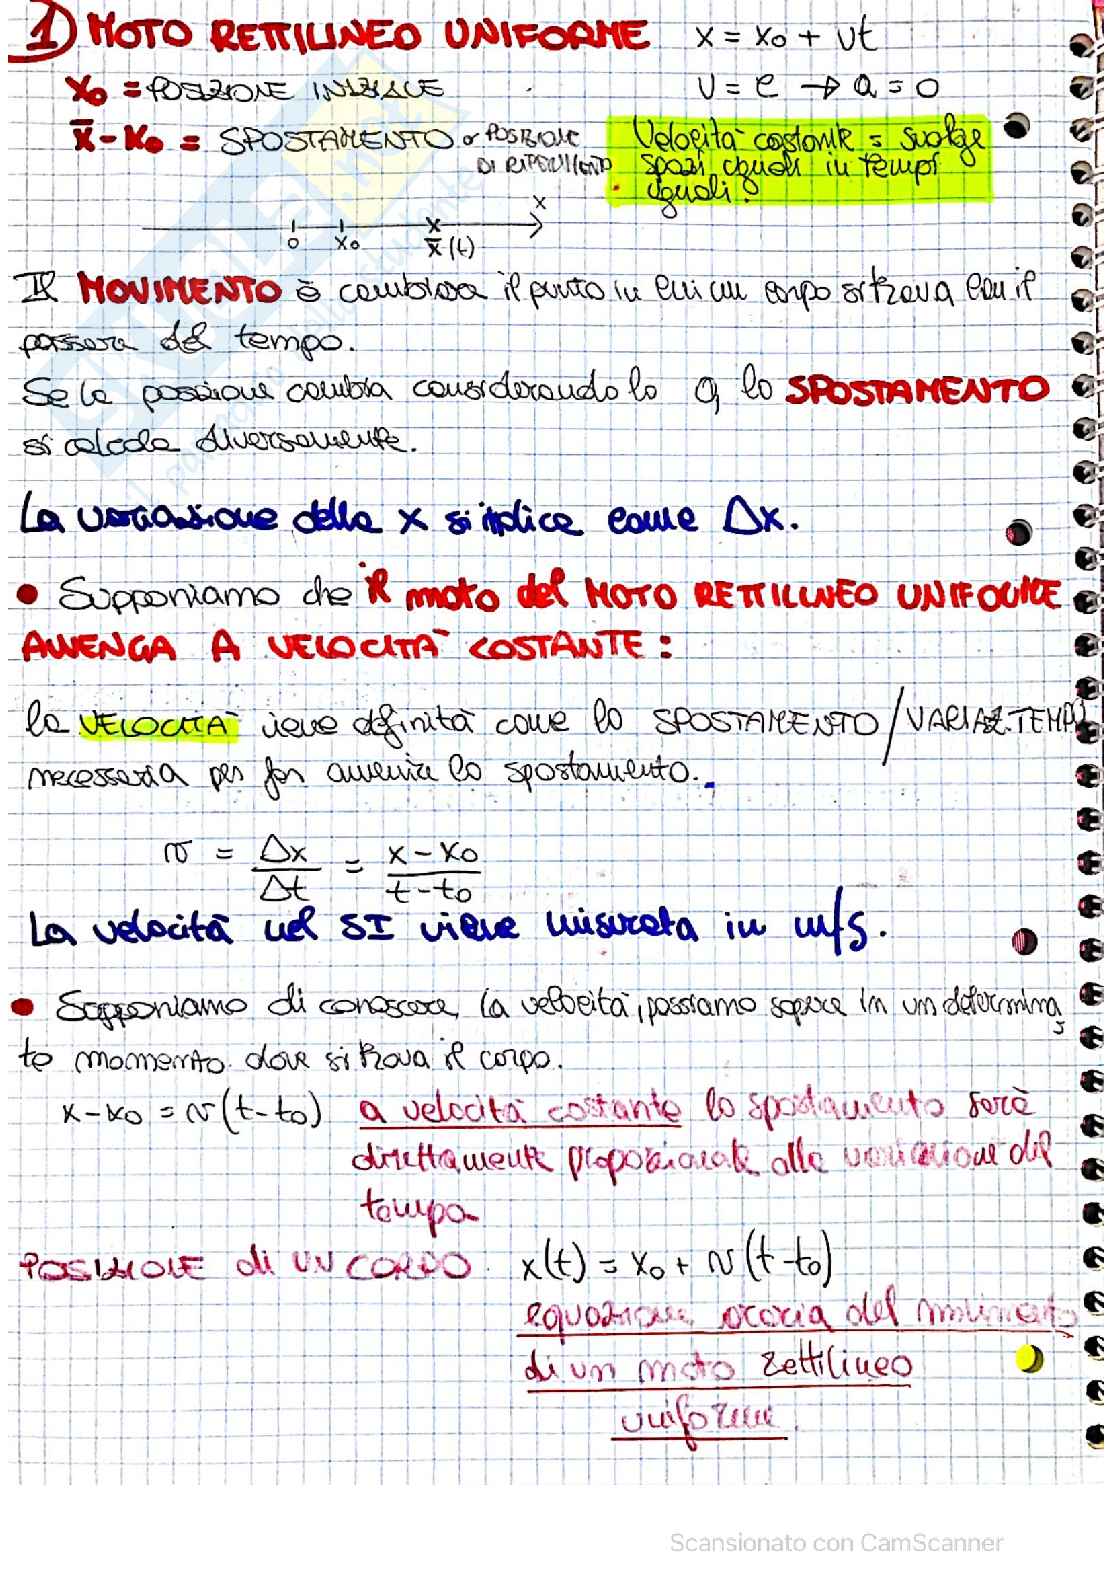 1) MOTO RETTILINEO UNIFORME x = x₀ + vt
x₀ = POSIZIONE INIZIALE v = c → a = 0
x̄ - x₀ = SPOSTAMENTO o POSIZIONE DI RIFERIMENTO
Velocità costante = svolge
spazi uguali in tempi
uguali.
0 x₀ x̄(t) x
Il MOVIMENTO è cambiare il punto in cui un corpo si trova con il
passare del tempo.
Se la posizione cambia considerando lo lo SPOSTAMENTO
si calcola diversamente.
La variazione della x si indica come Δx.
• Supponiamo che il moto del MOTO RETTILINEO UNIFORME
AVVENGA A VELOCITÀ COSTANTE :
la VELOCITÀ viene definita come lo SPOSTAMENTO / VARIAZ. TEMPO
necessaria per far avvenire lo spostamento.
v = Δx/Δt = x - x₀ / t - t₀
La velocità nel SI viene misurata in m/s.
• Supponiamo di conoscere la velocità, possiamo sapere in un determina
to momento dove si trova il corpo.
x - x₀ = v(t - t₀) a velocità costante lo spostamento sarà
direttamente proporzionale alla variazione del
tempo
POSIZIONE di UN CORPO x(t) = x₀ + v(t - t₀)
equazione oraria del movimento
di un moto rettilineo
uniforme.
Scansionato con CamScanner